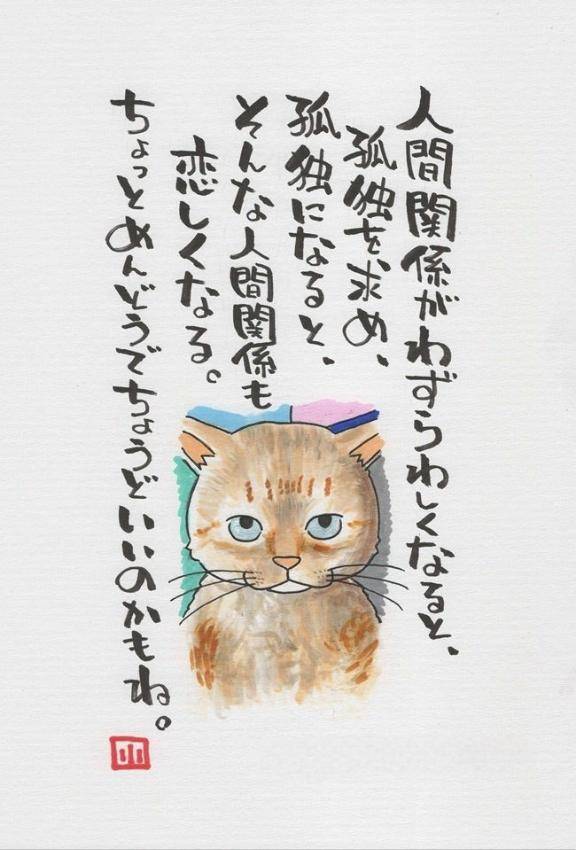 人間関係がわずらわしくなると、
孤独を求め、
孤独になると、
そんな人間関係も
恋しくなる。
ちょっとめんどうでちょうどいいのかもね。
山